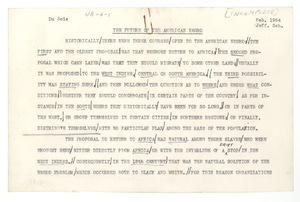 Du Bois
Feb. 1954
Jeff. Sch.
THE FUTURE OF THE AMERICAN NEGRO
HISTORICALLY/THERE WERE THREE COURSES/OPEN TO THE AMERICAN NEGROES/THE
FIRST AND THE OLDEST PROPOSAL WAS THAT NEGROES RETURN TO AFRICA/THE SECOND PRO-
POSAL WHICH CAME LATER/WAS THAT THEY SHOULD MIGRATE/TO SOME OTHER LAND/USUALLY
IT WAS PROPOSED/TO THE WEST INDIES/CENTRAL OR SOUTH AMERICA//THE THIRD POSSIBI-
LITY WAS STAYING HERE//AND THEN FOLLOWED THE QUESTION AS TO WHERE/AND UNDER WHAT CON-
DITIONS/WHETHER THEY SHOULD CONCENTRATE/IN CERTAIN PARTS OF THE COUNTRY/AS FOR IN-
STANCE/IN THE SOUTH WHERE THEY HISTORICALLY/HAVE BEEN SO LONG/OR IN PARTS OF
THE WEST/OR GROUP THEMSELVES/IN CERTAIN CITIES/IN NORTHERN REGIONS/OR FINALLY,
DISTRIBUTE THEMSELVES/WITH NO PARTICULAR PLAN/AMONG THE MASS OF THE POPULATION.
THE PROPOSAL TO RETURN TO AFRICA/WAS NATURAL AMONG THOSE SLAVES/WHO WERE
BROUGHT HERE/EITHER DIRECTLY FROM AFRICA/OR WITH THE INTERLUDE OF A BRIEF STOP/IN THE
WEST INDIES//CONSEQUENTLY/IN THE 18TH CENTURY/THAT WAS THE NATURAL SOLUTION OF THE
NEGRO PROBLEM/WHICH OCCURRED BOTH TO BLACK AND WHITE//FOR THIS REASON ORGANIZATIONS